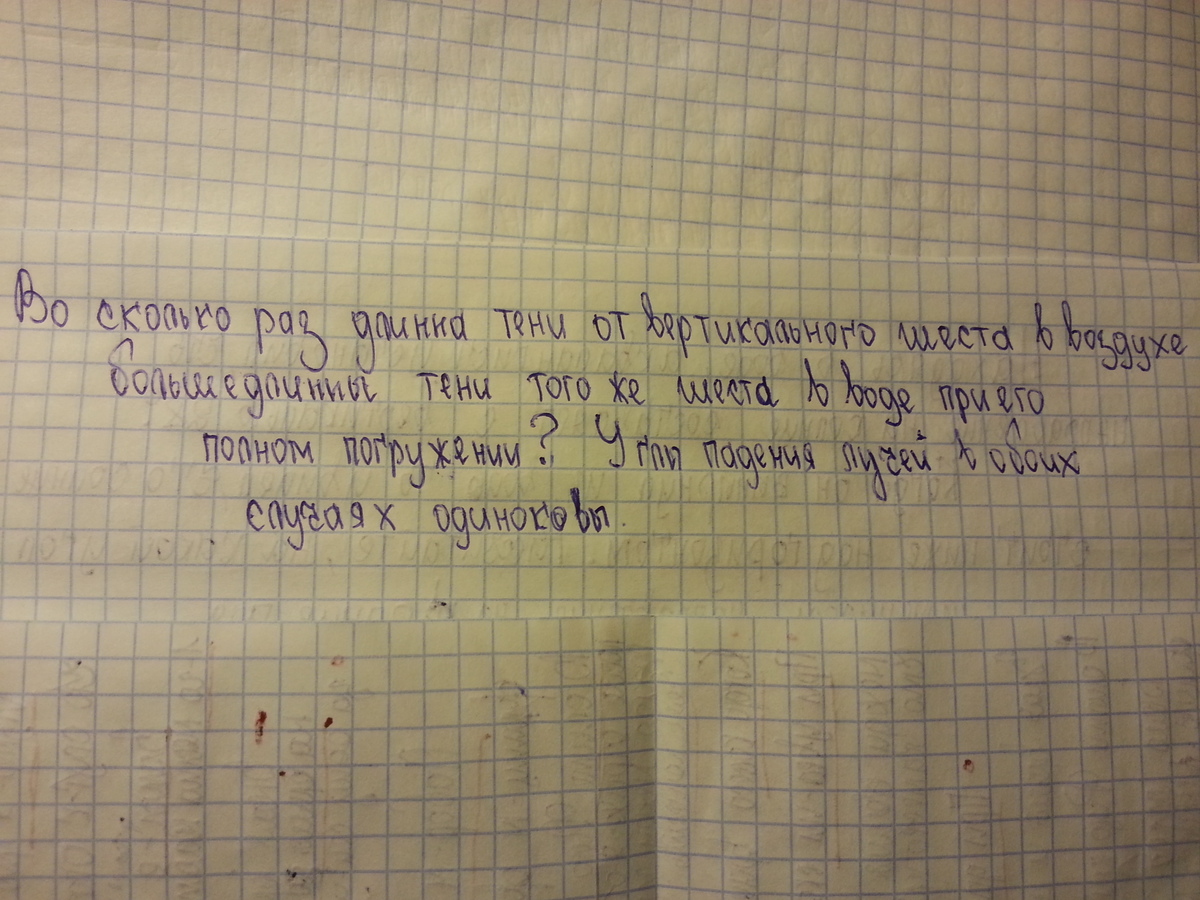 Во сколько раз длинна тени от вертикального шеста в воздухе
больше длинны тени того же шеста в воде при его
полном погружении? Углы падения лучей в обоих
случаях одиноковы.